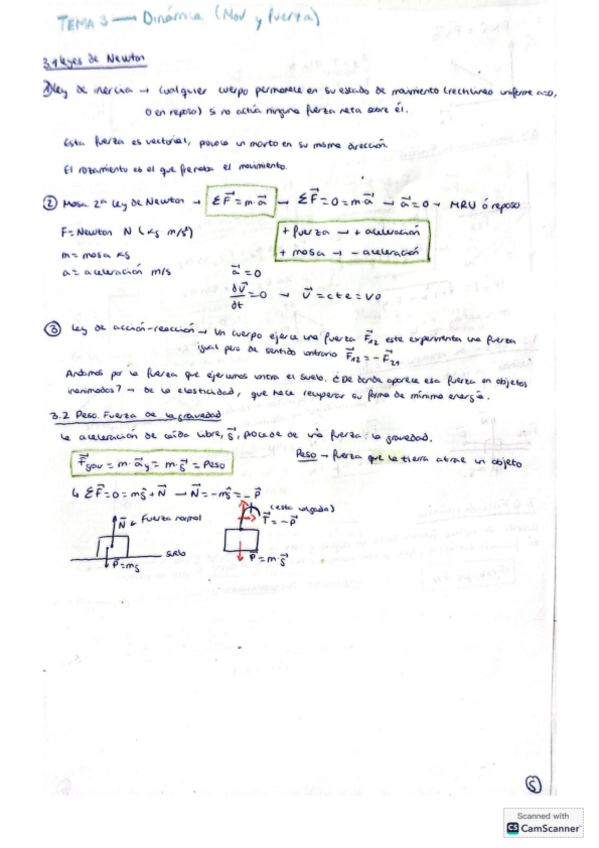 TEMA 3 → Dinámica (Mov y fuerza)
3.1 Leyes de Newton
① Ley de inercia → Cualquier cuerpo permanece en su estado de movimiento (rectilíneo uniforme a=0,
o en reposo) si no actúa ninguna fuerza neta sobre él.
Esta fuerza es vectorial, en su misma dirección
El rozamiento es el que frena el movimiento.
② Masa 2ª Ley de Newton → ΣF⃗=m·a⃗ → ΣF⃗=0=m·a⃗ → a⃗=0 → MRU ó reposo
F= Newton N (kg m/s²)
+ fuerza → + aceleración
m= masa kg
+ masa → - aceleración
a= aceleración m/s
a⃗=0
dv⃗/dt=0 → v⃗=cte=v0
③ Ley de acción-reacción → Un cuerpo ejerce una fuerza F⃗12 este experimenta una fuerza
igual pero de sentido contrario F⃗12=-F⃗21
Andamos por la fuerza que ejercemos contra el suelo. ¿De donde aparece esa fuerza en objetos
inanimados? → de la elasticidad, que hace recuperar su forma de mínima energía.
3.2 Peso. Fuerza de la gravedad
La aceleración de caída libre, g⃗, procede de una fuerza: la gravedad.
F⃗grav = m·a⃗y = m·g⃗ = Peso
Peso → fuerza que la tierra atrae un objeto
↳ ΣF⃗=0=mg⃗+N⃗ → N⃗=-mg⃗=-P⃗
N⃗ ← Fuerza normal
(esta colgada)
T⃗=-P⃗
suelo
P⃗=mg
P⃗=m·g⃗
5
Scanned with
CS CamScanner